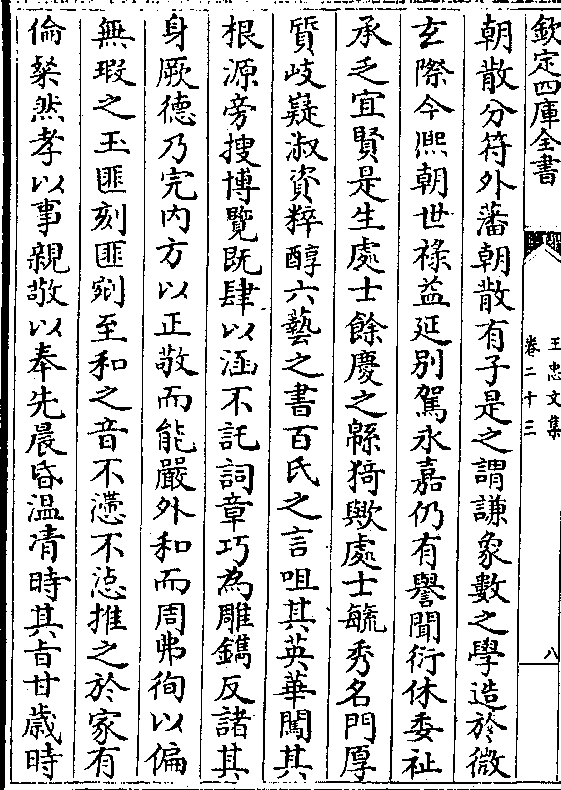 欽定四庫全書
王忠文集
卷二十三
八
朝散分符外藩朝散有子是之謂謙象數之學造於微
玄際今熙朝世祿益延別駕永嘉仍有譽聞衍休委祉
承乏宜賢是生處士餘慶之緜猗歟處士毓秀名門厚
質岐嶷淑資粹醇六藝之書百氏之言咀其英華闖其
根源旁搜博覽既肆以涵不託詞章巧為雕鐫反諸其
身厥德乃完内方以正敬而能嚴外和而周弗徇以偏
無瑕之玉匪刻匪剜至和之音不懘不怘推之於家有
倫粲然孝以事親敬以奉先晨昏温凊時其旨甘歲時